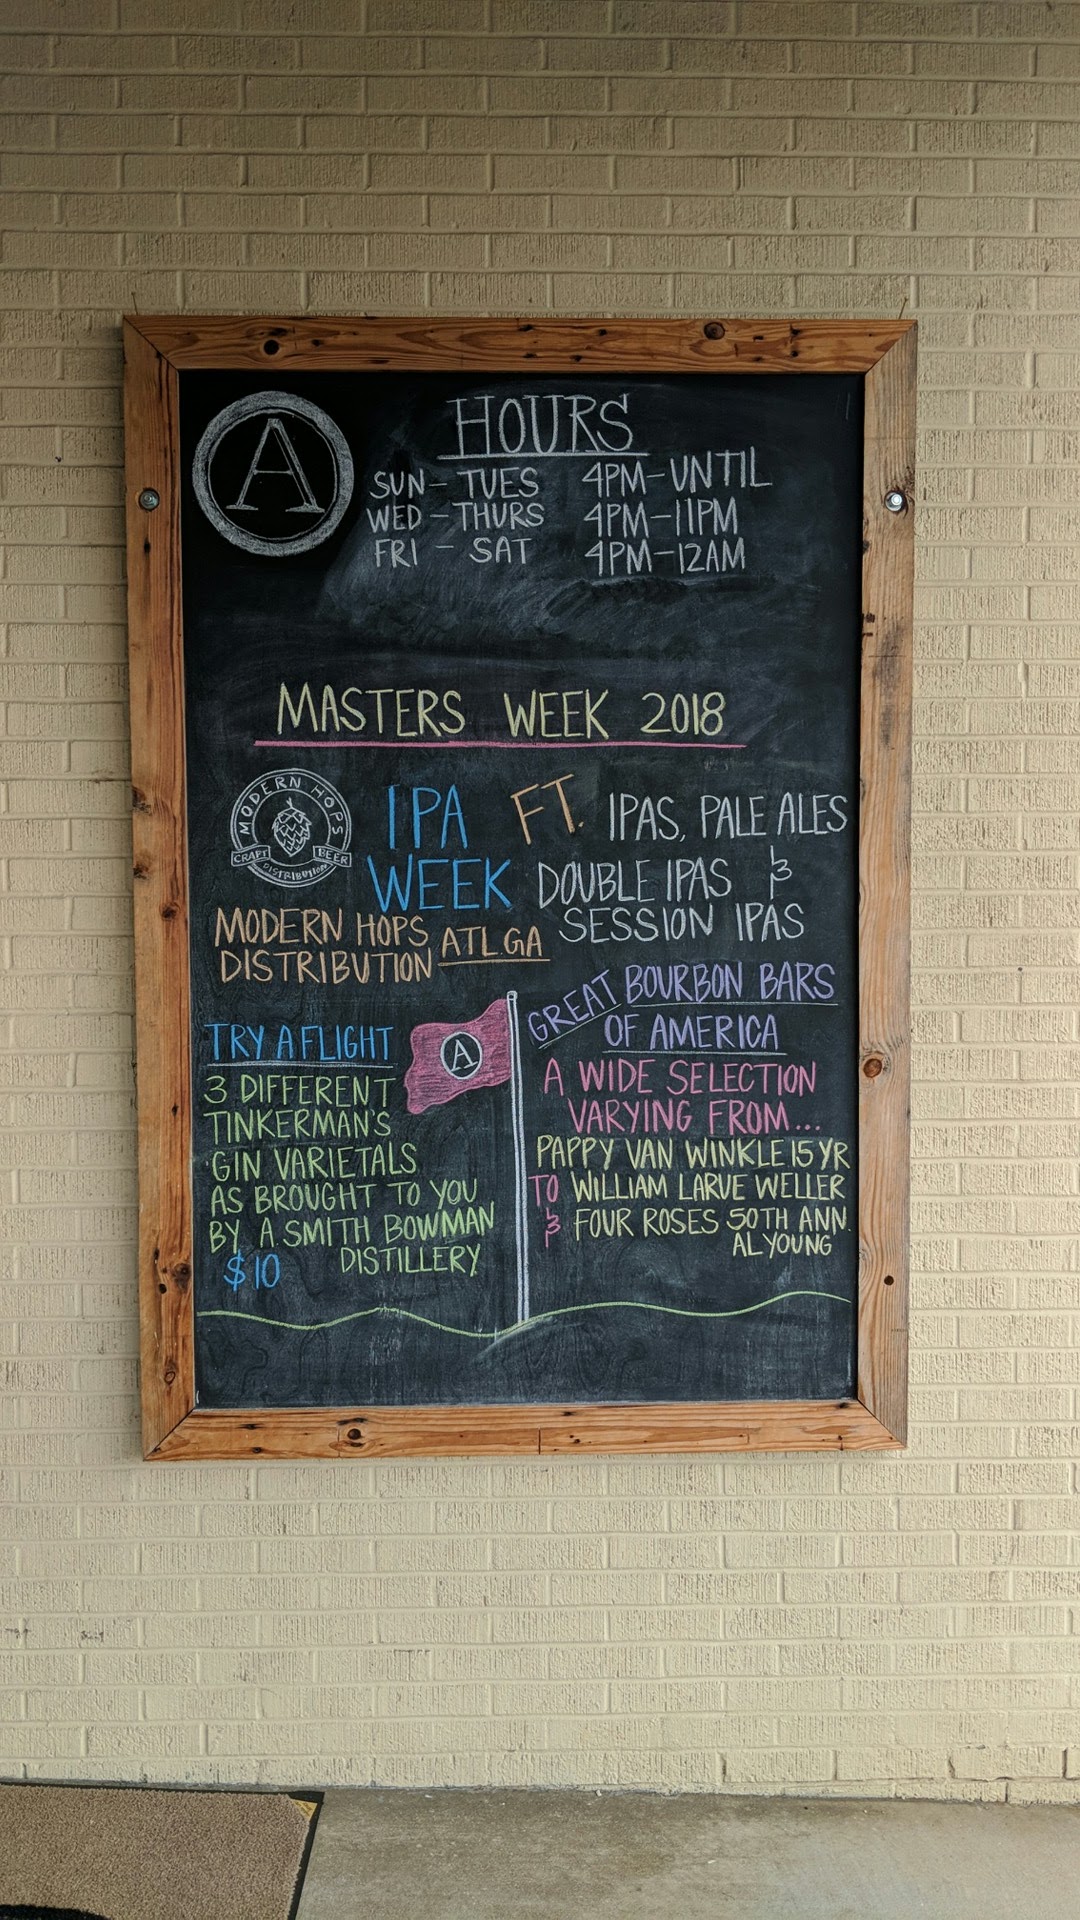 A
HOURS
SUN - TUES 4PM-UNTIL
WED - THURS 4PM-11PM
FRI - SAT 4PM-12AM
MASTERS WEEK 2018
MODERN HOPS
CRAFT BEER
DISTRIBUTION
IPA
WEEK
MODERN HOPS
DISTRIBUTION ATL.GA
FT. IPAS, PALE ALES
DOUBLE IPAS &
SESSION IPAS
TRY A FLIGHT
3 DIFFERENT
TINKERMAN'S
GIN VARIETALS
AS BROUGHT TO YOU
BY A.SMITH BOWMAN
DISTILLERY
$10
A
GREAT BOURBON BARS
OF AMERICA
A WIDE SELECTION
VARYING FROM...
PAPPY VAN WINKLE 15 YR
TO WILLIAM LARUE WELLER
& FOUR ROSES 50TH ANN.
AL YOUNG